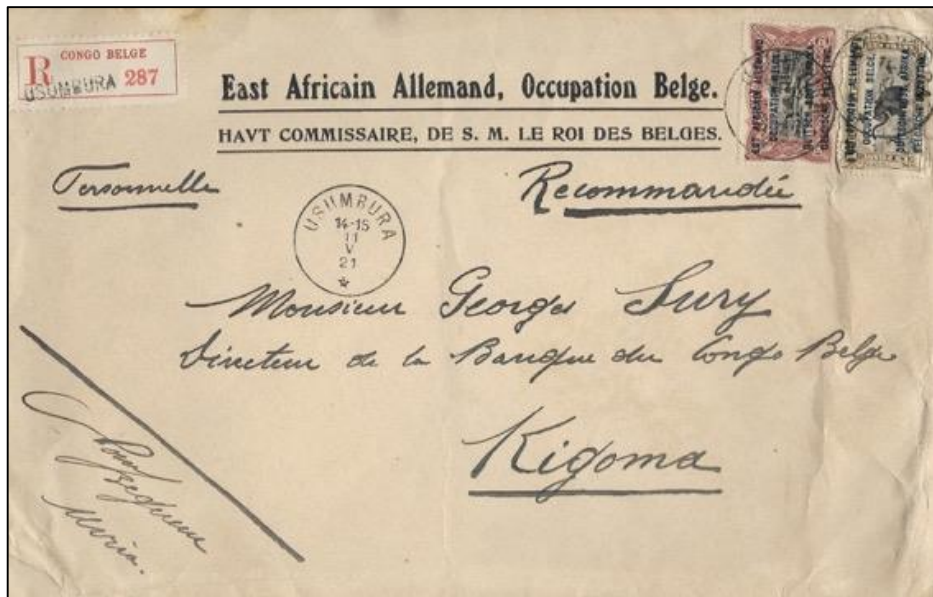 CONGO BELGE
R USUMBURA 287
East Africain Allemand, Occupation Belge.
HAVT COMMISSAIRE, DE S. M. LE ROI DES BELGES.
EST AFRICAIN ALLEMAND
OCCUPATION BELGE
DUITSCH OOST AFRIKA
BELGISCHE BEZETTING
EST AFRICAIN ALLEMAND
OCCUPATION BELGE
DUITSCH OOST AFRIKA
BELGISCHE BEZETTING
Personnelle
Recommandée
USUMBURA
14-15
11
V
21
Monsieur Georges Sury
Directeur de la Banque du Congo Belge
Kigoma